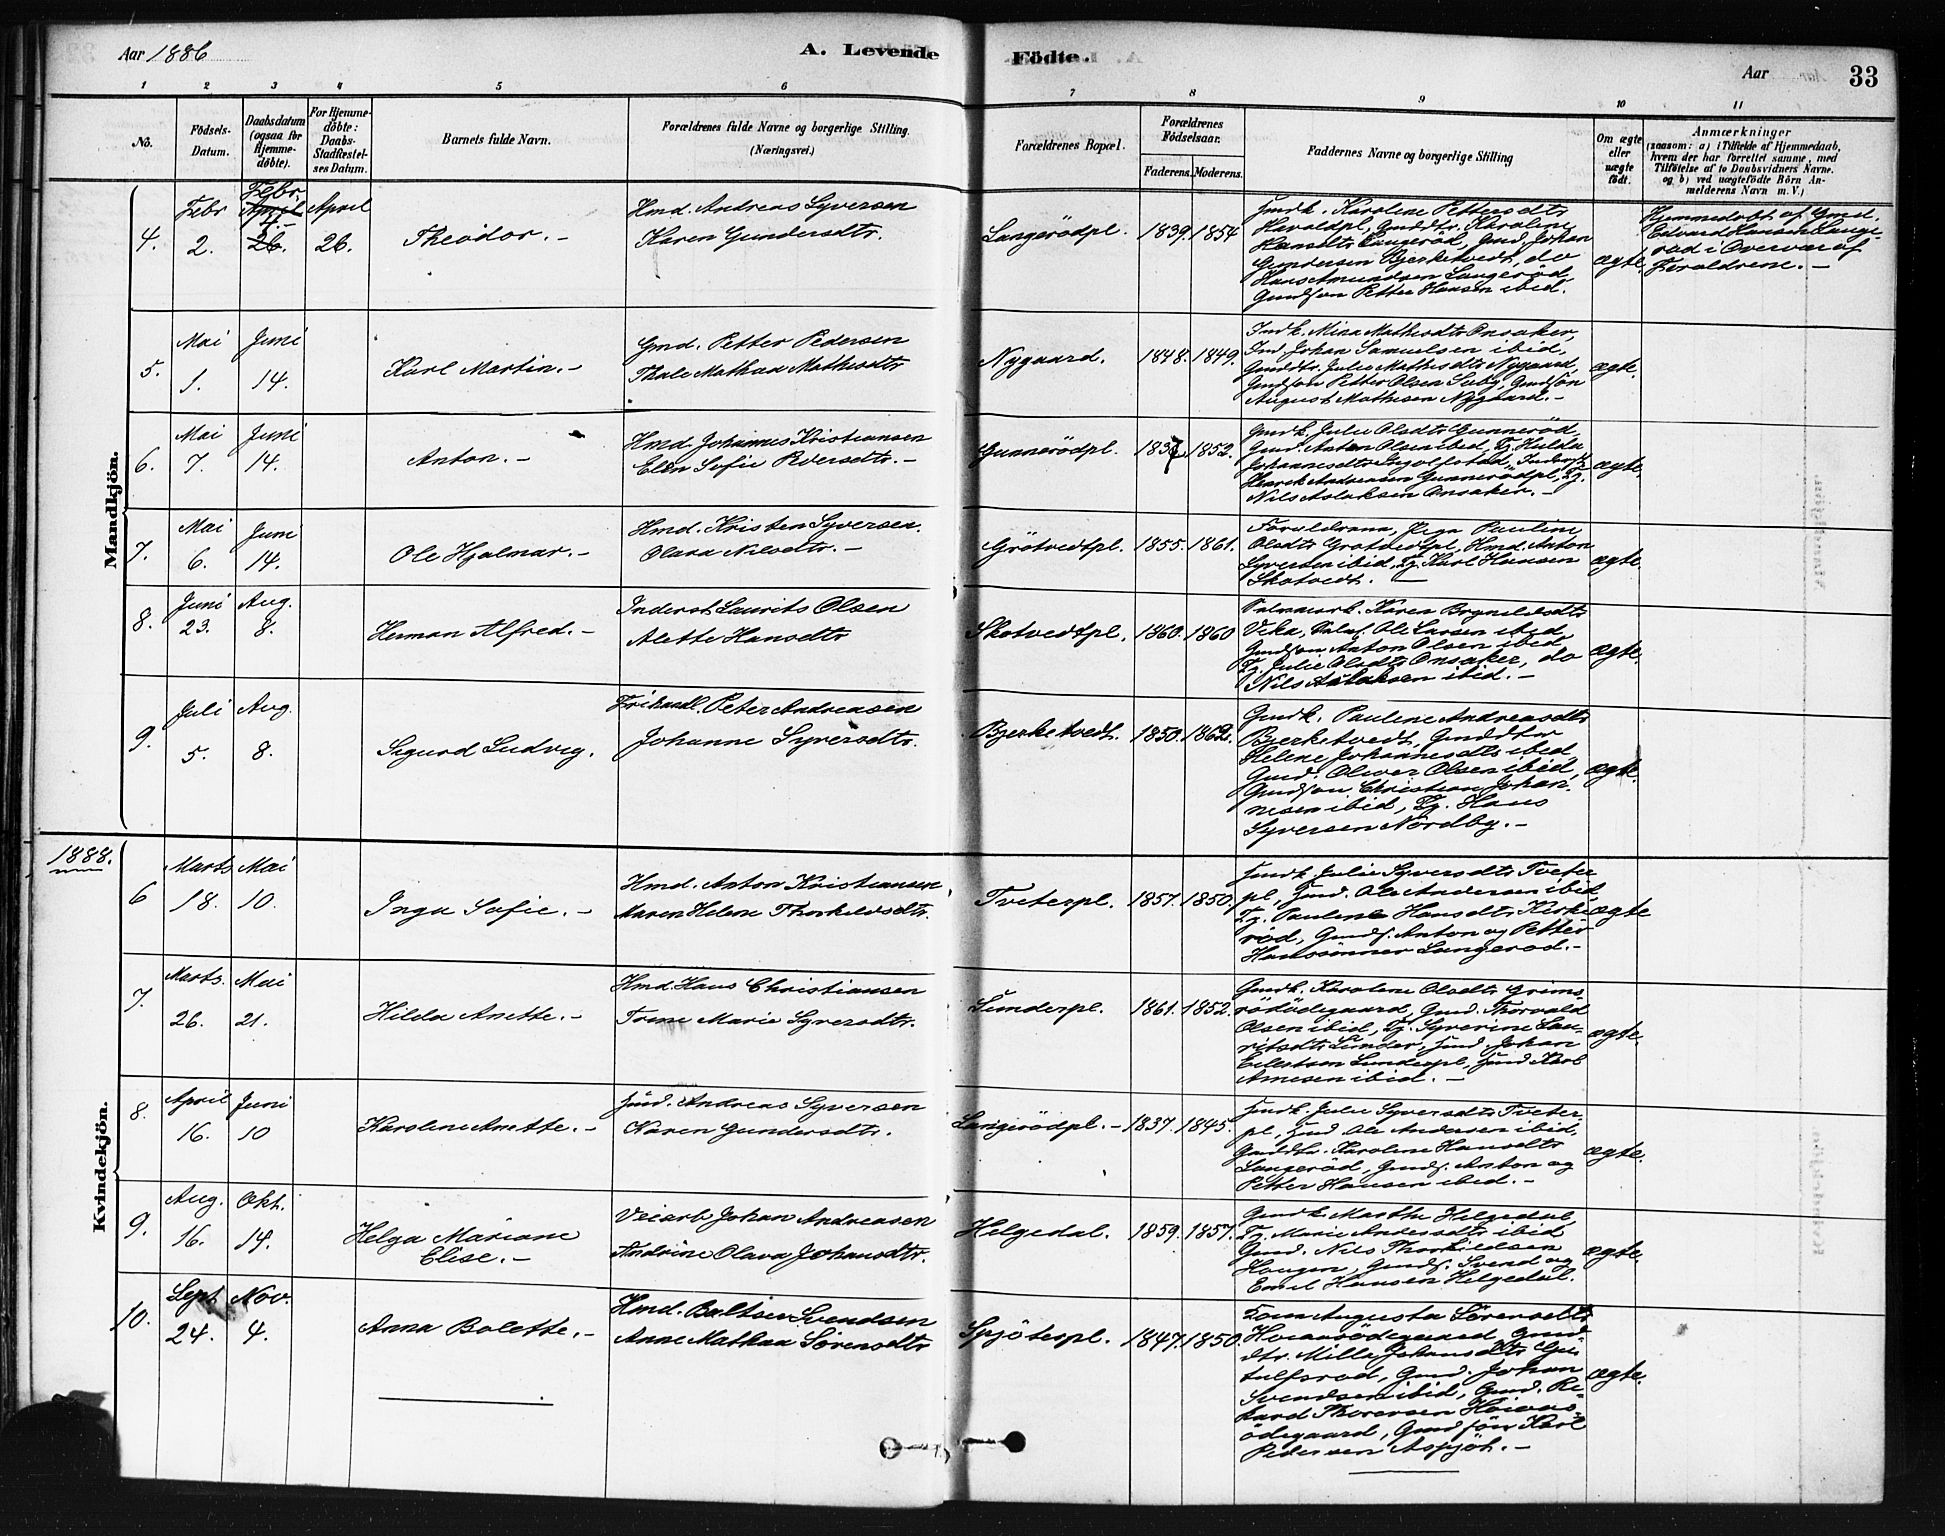 Aar 1886
A. Levende
Födte.
Aar
33
1 2 3 4 5 6 7 8 9 10 11
No.
Födsels-
Datum.
Daabsdatum
(ogsaa for
Hjemme-
döbte).
For Hjemme-
döbte:
Daabs-
Stadfæstel-
ses Datum.
Barnets fulde Navn.
Forældrenes fulde Navne og borgerlige Stilling.
(Næringsvei.)
Forældrenes Bopæl.
Forældrenes
Födselsaar.
Faderens. Moderens.
Faddernes Navne og borgerlige Stilling
Om ægte
eller
uægte
födt.
Anmærkninger
(saasom: a) i Tilfælde af Hjemmedaab,
hvem der har forrettet samme, med
Tilföielse af to Daabsvidners Navne.
og b) ved uægtefödte Börn An-
melderens Navn m. V.)
Mandkjön.
4.
Febr
2.
Febr.
April
26.
April
26.
Theodor. -
Hmd. Andreas Syversen
Karen Gundersdtr.
Langerödpl. 1839. 1854
Karoline Pettersdtr
Haraldpl, Gmddtr. Karoline
Hansdtr Langeröd, Gmd. Johan
Gundersen Bjerketvedt, do
Hans Amundsen Langeröd,
Gmdsön Petter Hansen ibid.
ægte.
Hjemmedöbt af Gmd.
Edvard Hansen Lange-
röd i Overvær af
Forældrene. -
5.
Mai
1.
Juni
14.
Karl Martin. -
Gmd. Petter Pedersen
Thale Mathea Mathisdtr
Nygaard. 1848. 1849.
Mina Mathisdtr Onsaker,
Johan Samuelsen ibid,
Gmddtr. Julie Mathisdtr Nygaard,
Gmdsön Petter Olsen Suby, Gmdsön
August Mathisen Nygaard. -
ægte.
6.
Mai
7.
Juni
14.
Anton. -
Hmd. Johannes Kristiansen
Elen Sofie Iversdtr. -
Gunnerödpl. 1837. 1852.
Gmdk. Julie Olsdtr Gunneröd,
Gmd. Anton Olsen ibid, Tj. Hulda
Johannesdtr Inderst
Henrik Andreasen Gunnerödpl, Tj.
Nils Aslaksen Onsaker. -
ægte.
7.
Mai
6.
Juni
14.
Ole Hjalmar. -
Hmd. Kristen Syversen.
Olava Nilsdtr. -
Grötvedtpl. 1855. 1861.
Forældrene, Pige Pauline
Olsdtr Grötvedtpl, Hmd. Anton
Syversen ibid, Tj. Karl Hansen
Skotvedt. -
ægte.
8.
Juni
23.
Aug.
8.
Herman Alfred. -
Inderst Laurits Olsen
Alette Hansdtr
Skotvedtpl. 1860. 1860
Karen Brynildsdtr
Vika, Ole Larsen ibid
Gmdsön Anton Olsen ibid,
Tj. Julie Olsdtr Onsaker, do
Nils Aslaksen ibid. -
ægte.
9.
Juli
5.
Aug.
8.
Sigurd Ludvig.
Frihandl. Peter Andreasen
Johanne Syversdtr.
Bjerketvedt. 1850. 1862.
Gmdk. Pauline Andreasdtr
Bjerketvedt, Gmddtr
Helene Johannesdtr ibid
Gmd. Oliver Olsen ibid,
Gmdsön Christian Johan-
nesen ibid, Tj. Hans
Syversen Nordby. -
ægte.
1888.
Kvindekjön.
6
Marts
18.
Mai
10.
Inga Sofie. -
Hmd. Anton Kristiansen
Maren Helene Thorkildsdtr.
Tveterpl. 1857. 1850.
Hmdk. Julie Syversdtr Tveter
pl, Hmd. Ole Andersen ibid,
Tj. Pauline Hansdtr Kirke-
röd, Gmds. Anton og Petter
Hanssönner Langeröd. -
ægte
7.
Marts.
26.
Mai
21.
Hilda Anette. -
Hmd. Hans Christiansen
Trine Marie Syversdtr.
Lunderpl. 1861. 1852.
Gmdk. Karoline Olsdtr Grims-
rödödegaard, Gmd. Thorvald
Olsen ibid, Tj. Syverine Lau-
ritsdtr Lunder, Hmd. Johan
Lunderpl, Hmd Karl
Arnesen ibid. -
ægte.
8.
April
16.
Juni
10
Karoline Anette. -
Hmd. Andreas Syversen
Karen Gundersdtr.
Langerödpl. - 1837. 1845.
Hmdk. Julie Syversdtr Tveter-
pl, Hmd Ole Andersen ibid,
Gmddtr. Karoline Hansdtr
Langeröd, Gmds. Anton og
Petter Hansen ibid. -
ægte.
9.
Aug.
16.
Okt.
14.
Helga Mariane
Elise. -
Veiarb Johan Andreasen
Andrine Olava Johansdtr.
Helgedal. 1859. 1857.
Gmdk. Marthe Helgedal,
Tj. Marie Andersdtr ibid
Gmd. Nils Thorkildsen
Haugen, Gmds. Svend og
Emil Hansen Helgedal.
ægte.
10.
Sept
24.
Nov.
4.
Anna Bolette. -
Hmd. Baltser Svendsen
Anne Mathea Sörensdtr
Spjöterpl. 1847. 1850.
Augusta Sörensdtr
Hoiaasödegaard, Gmd
dtr. Milla Johansdtr Gu-
tulfsröd, Gmd. Johan
Svendsen ibid, Gmd. Ri-
kard Thoresen Hoiaas-
ödegaard, Gmdsön Karl
Pedersen Aspjöt. -
ægte.